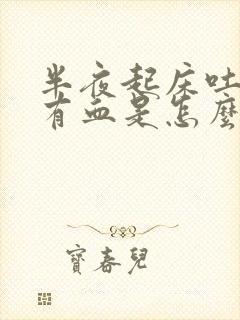 半夜起床吐
有血是怎麼
寶春兒